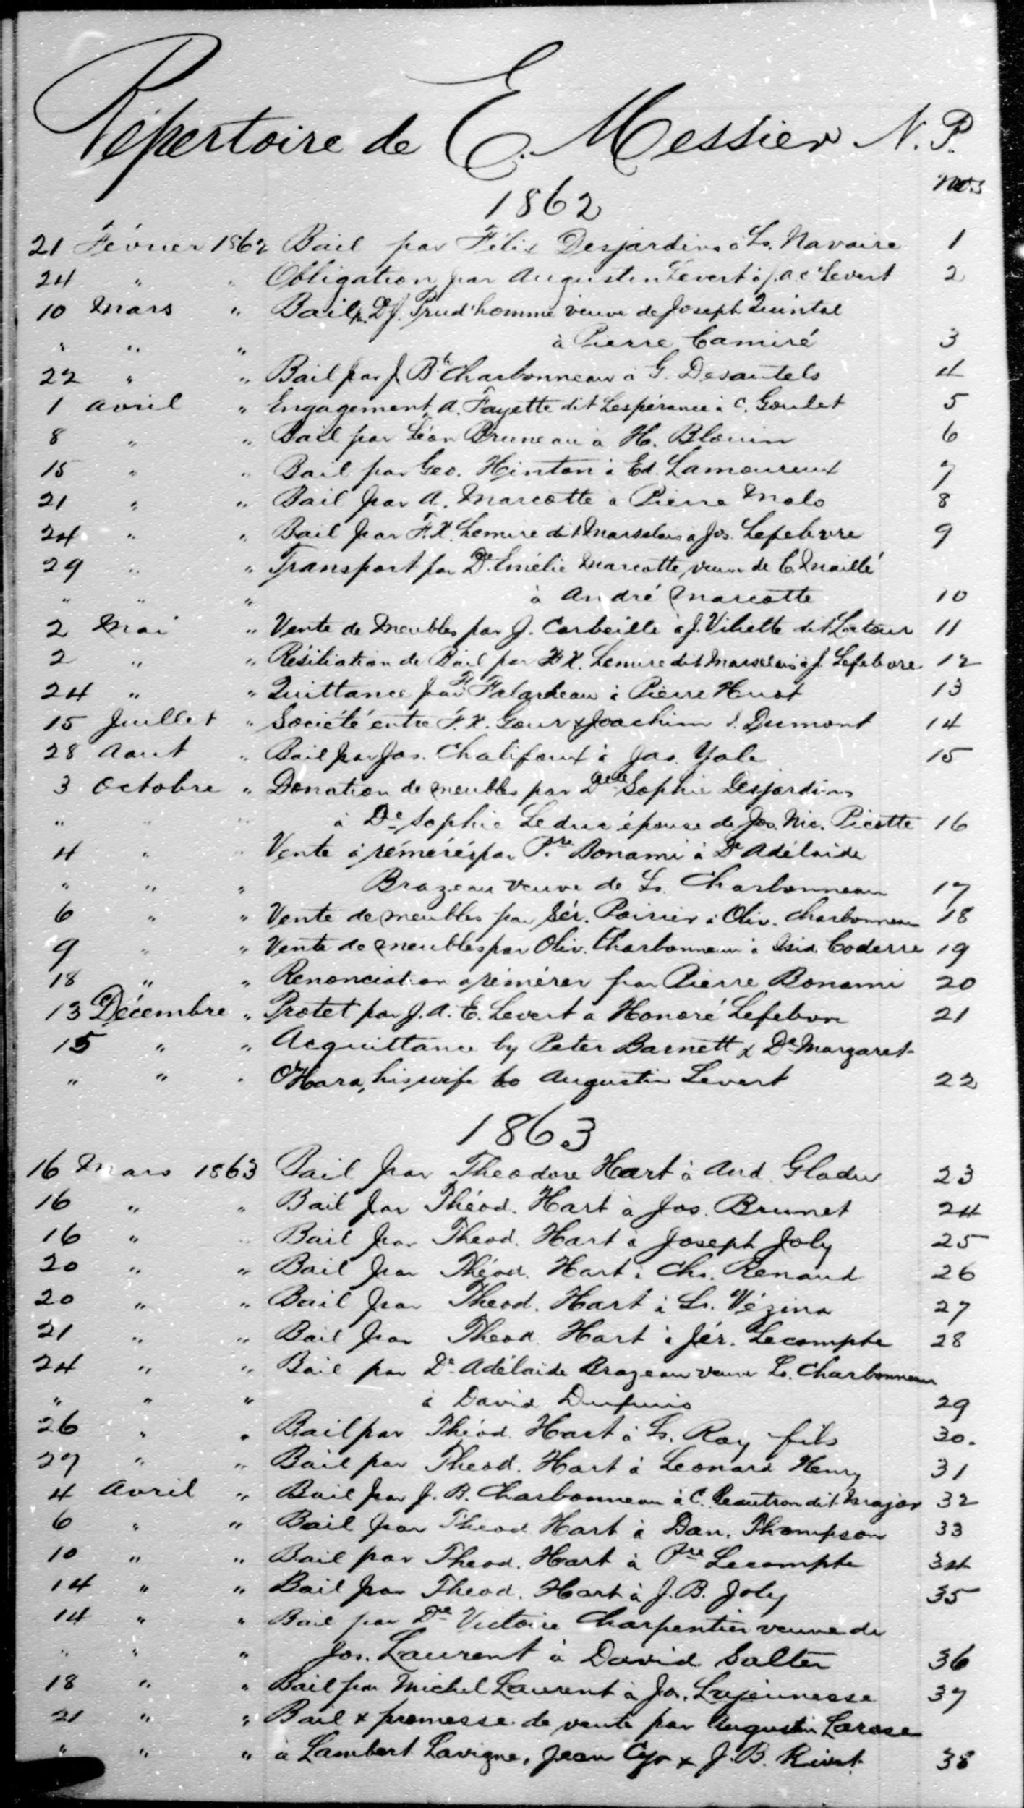 Répertoire de E. Messier N. P.
Nos
1862
21 Février 1862 Bail par Félix Desjardins à Ls. Navaire 1
24 " " Obligation par Augustin Levert à J. A. C. Levert 2
10 Mars " Bail pr De J. Prud'homme veuve de Joseph Quintal
" " " à Pierre Camiré 3
22 " " Bail par J. Bte Charbonneau à G. Desautels 4
1 Avril " Engagement A. Fayette dit Lespérance à C. Goulet 5
8 " " Bail par Léon Bruneau à H. Blouin 6
15 " " Bail par Geo. Hinton à Ed. Lamoureux 7
21 " " Bail par A. Marcotte à Pierre Malo 8
24 " " Bail par F. X. Lemire dit Marsolais à Jos. Lefebvre 9
29 " " Transport par De. Emélie Marcotte, veuve de C. Maillé
" " " à André Marcotte 10
2 Mai " Vente de Meubles par J. Corbeille à J. Vilette dit Latour 11
2 " " Résiliation de Bail par F. X. Lemire dit Marsolais à J. Lefebvre 12
24 " " Quittance par Falardeau à Pierre Huot 13
15 Juillet " Société entre F. X. Gour & Joachim Dumont 14
28 Aout " Bail par Jos. Chalifoux à Jas. Yale 15
3 Octobre " Donation de meubles par Delle Sophie Desjardins
" " " à De Sophie Leduc épouse de Jos. Nic. Picotte 16
4 " " Vente à réméré par Pre Bonami à De Adélaide
" " " Brazeau veuve de Ls. Charbonneau 17
6 " " Vente de meubles par Sér. Poirier à Oliv. Charbonneau 18
9 " " Vente de meubles par Oliv. Charbonneau à Isid. Coderre 19
18 " " Renonciation à rémérer par Pierre Bonami 20
13 Décembre " Protet par J. A. E. Levert à Honoré Lefebvre 21
15 " " Acquittance by Peter Barnett & De Margaret
" " " O'Hara, his wife to Augustin Levert 22
1863
16 Mars 1863 Bail par Theodore Hart à And. Gladu 23
16 " " Bail par Théod. Hart à Jos. Brunet 24
16 " " Bail par Theod. Hart à Joseph Joly 25
20 " " Bail par Théod. Hart à Chs. Renaud 26
20 " " Bail par Theod. Hart à Ls. Vézina 27
21 " " Bail par Theod. Hart à Jér. Lecompte 28
24 " " Bail par De. Adélaide Brazeau veuve Ls. Charbonneau
" " " à David Dupuis 29
26 " " Bail par Théod. Hart à Ls. Roy fils 30.
27 " " Bail par Theod. Hart à Leonard Henry 31
4 Avril " Bail par J. B. Charbonneau à C. Beautron dit Major 32
6 " " Bail par Theod. Hart à Dan. Thompson 33
10 " " Bail par Theod. Hart à Pre Lecompte 34
14 " " Bail par Theod. Hart à J. B. Joly 35
14 " " Bail par De Victoire Charpentier veuve de
" " " Jos. Laurent à David Salter 36
18 " " Bail par Michel Laurent à Jos. Lajeunesse 37
21 " " Bail & promesse de vente par Augustin Larose
" " " à Lambert Lavigne, Jean Cyr & J. B. Rivet 38